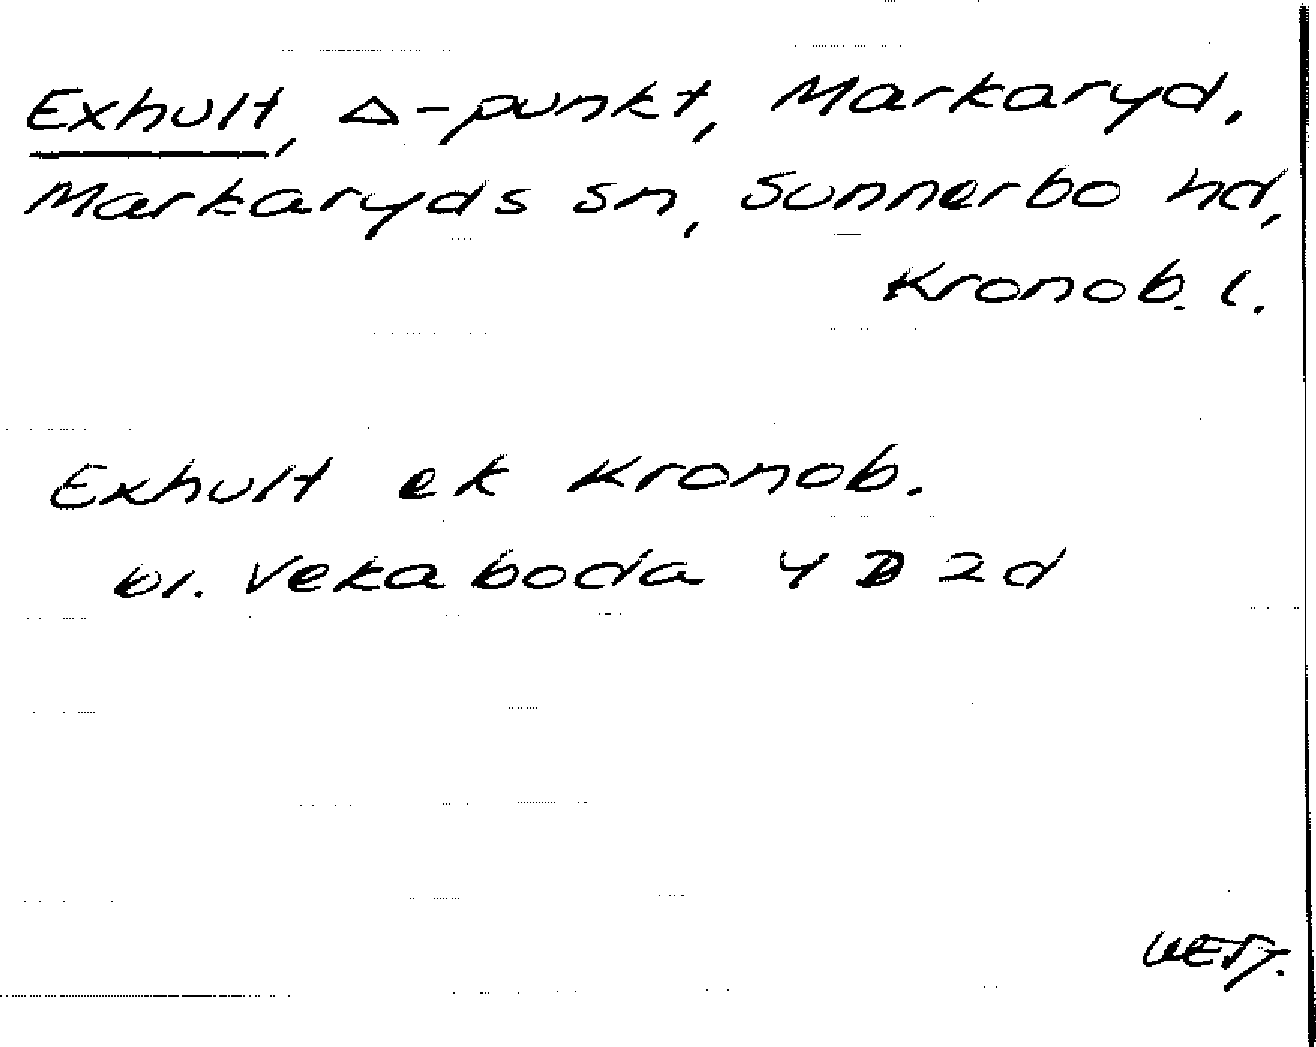 Exhult, △-punkt, Markaryd,
Markaryds sn, Sunnerbo hd,
Kronob. l.
Exhult ek Kronob.
bl. Vekaboda 4 D 2d